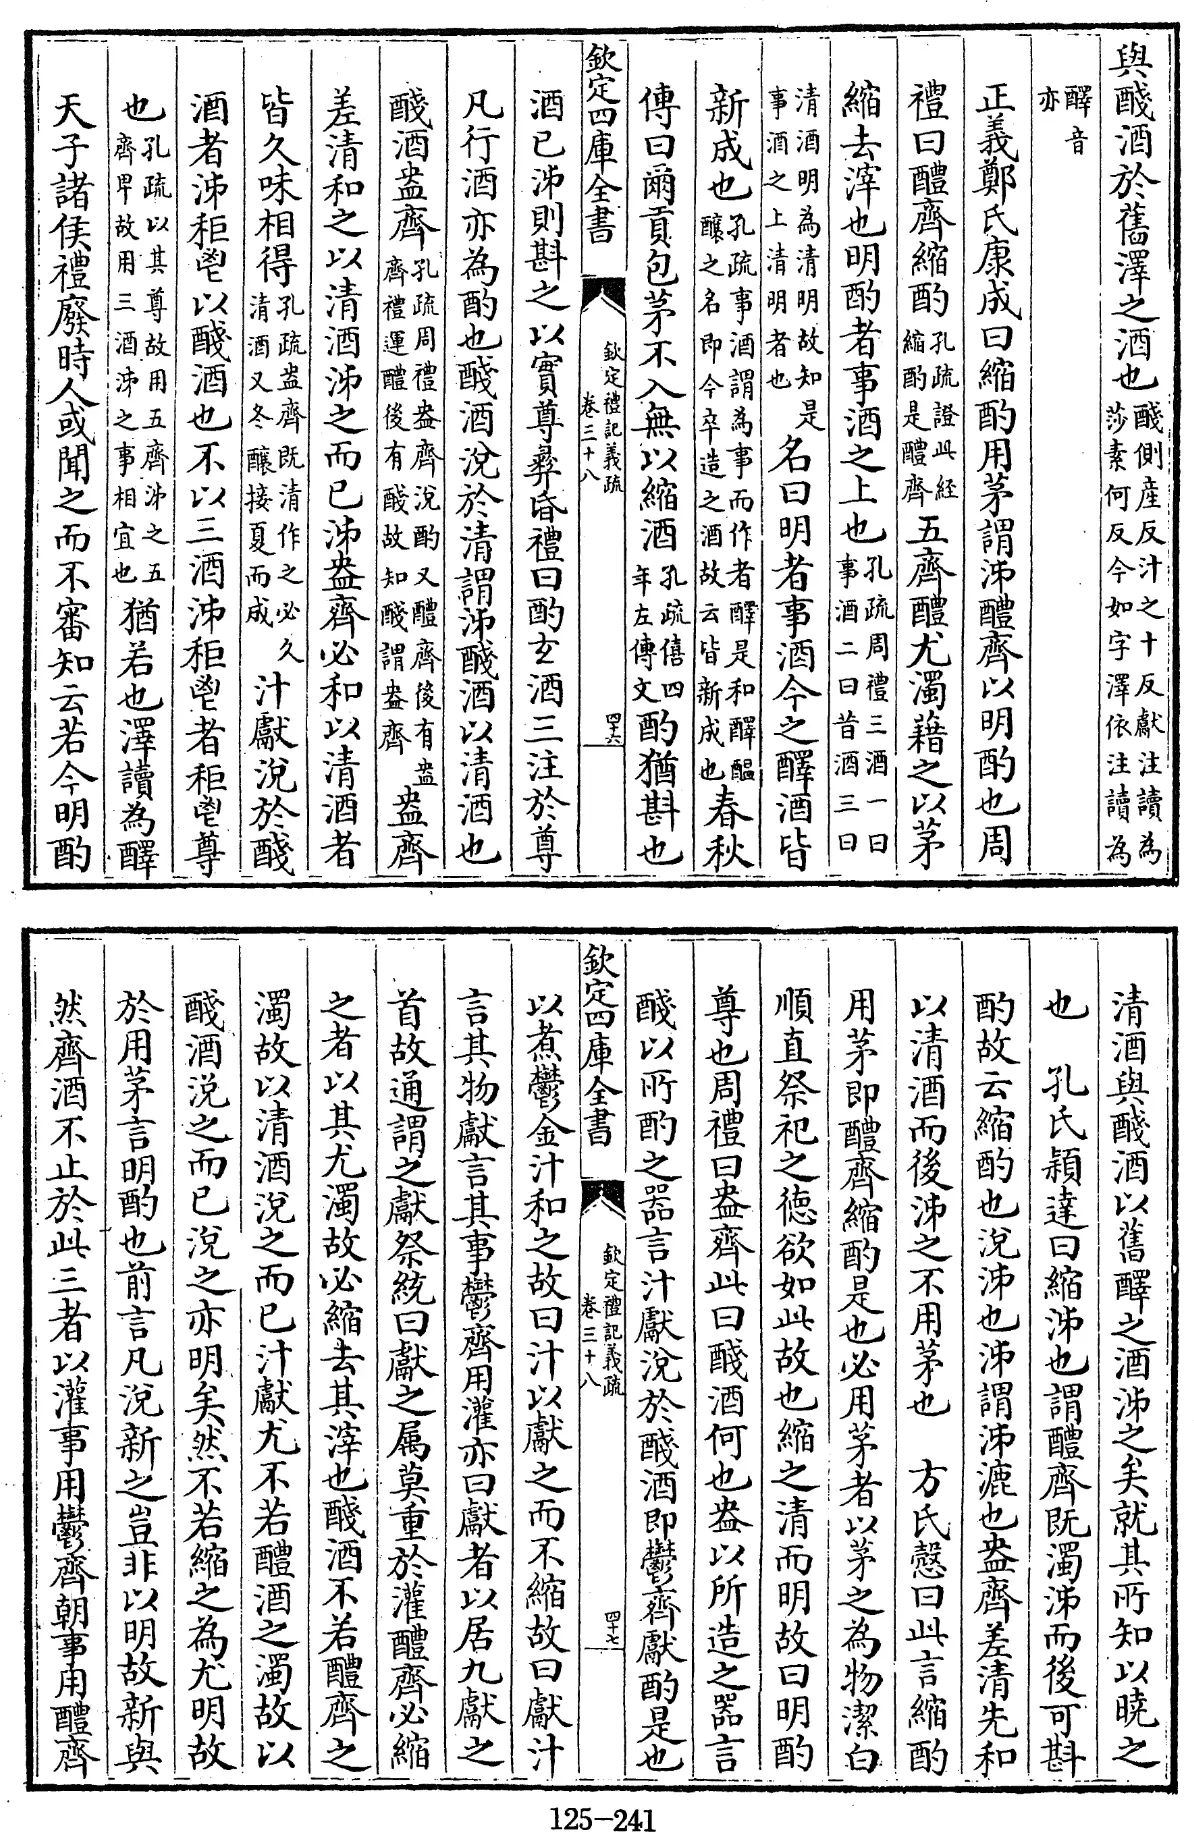 與醆酒於舊澤之酒也醆側産反汁之十反獻注讀為莎素何反今如字澤依注讀為
醳音亦
正義鄭氏康成曰縮酌用茅謂泲醴齊以明酌也周
禮曰醴齊縮酌孔疏證此經縮酌是醴齊五齊醴尤濁藉之以茅
縮去滓也明酌者事酒之上也孔疏周禮三酒一曰事酒二曰昔酒三曰
清酒明為清明故知是事酒之上清明者也名曰明者事酒今之醳酒皆
新成也孔疏事酒謂為事而作者醳是和醳醖釀之名即今卒造之酒故云皆新成也春秋
傳曰爾貢包茅不入無以縮酒孔疏僖四年左傳文酌猶斟也
欽定四庫全書
欽定禮記義疏
卷三十八
四十六
酒已泲則斟之以實尊彝昏禮曰酌玄酒三注於尊
凡行酒亦為酌也醆酒涚於清謂泲醆酒以清酒也
醆酒盎齊孔疏周禮盎齊涚酌又醴齊後有盎齊禮運醴後有醆故知醆謂盎齊盎齊
差清和之以清酒泲之而已泲盎齊必和以清酒者
皆久味相得孔疏盎齊既清作之必久清酒又冬釀接夏而成汁獻涚於醆
酒者泲秬鬯以醆酒也不以三酒泲秬鬯者秬鬯尊
也孔疏以其尊故用五齊泲之五齊卑故用三酒泲之事相宜也猶若也澤讀為醳
天子諸侯禮廢時人或聞之而不審知云若今明酌
清酒與醆酒以舊醳之酒泲之矣就其所知以曉之
也　孔氏穎達曰縮泲也謂醴齊既濁泲而後可斟
酌故云縮酌也涚泲也泲謂泲漉也盎齊差清先和
以清酒而後泲之不用茅也　方氏慤曰此言縮酌
用茅即醴齊縮酌是也必用茅者以茅之為物潔白
順直祭祀之德欲如此故也縮之清而明故曰明酌
尊也周禮曰盎齊此曰醆酒何也盎以所造之器言
醆以所酌之器言汁獻涚於醆酒即鬱齊獻酌是也
欽定四庫全書
欽定禮記義疏
卷三十八
四十七
以煮鬱金汁和之故曰汁以獻之而不縮故曰獻汁
言其物獻言其事鬱齊用灌亦曰獻者以居九獻之
首故通謂之獻祭統曰獻之属莫重於灌醴齊必縮
之者以其尤濁故必縮去其滓也醆酒不若醴齊之
濁故以清酒涚之而已汁獻尤不若醴酒之濁故以
醆酒涚之而已涚之亦明矣然不若縮之為尤明故
於用茅言明酌也前言凡涚新之豈非以明故新與
然齊酒不止於此三者以灌事用鬱齊朝事用醴齊
125-241